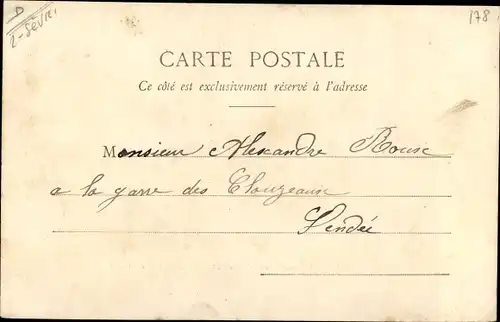 D
2-SÈVRI
178
CARTE POSTALE
Ce côté est exclusivement réservé à l'adresse
Monsieur Alexandre Roux
a la garre des Clouzeaux
Vendée